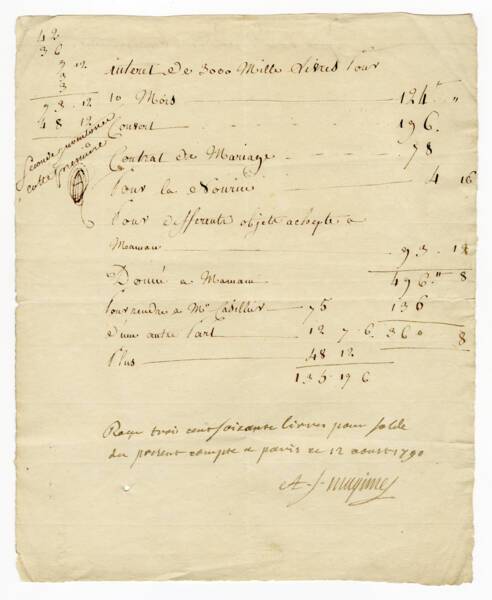 42
36
9 12
3
3
93 . 12
48 12
Seconde
cette première
interet de 3000 Mille Livres Pour
10 Mois 124 " "
Convert 196 .
Contrat de Mariage 78
Pour la Nourice 4 16
Pour differents objets achepté a
Maman 93 . 12
496 " 8
Donné a Maman 136
Pour rendre a Mr Cadillier 75 360 8
d'une autre Part 12 7 . 6
Plus 48 12
135 . 19 6
Reçu trois cent soixante livres pour solde
du present compte a paris ce 12 aoust 1790